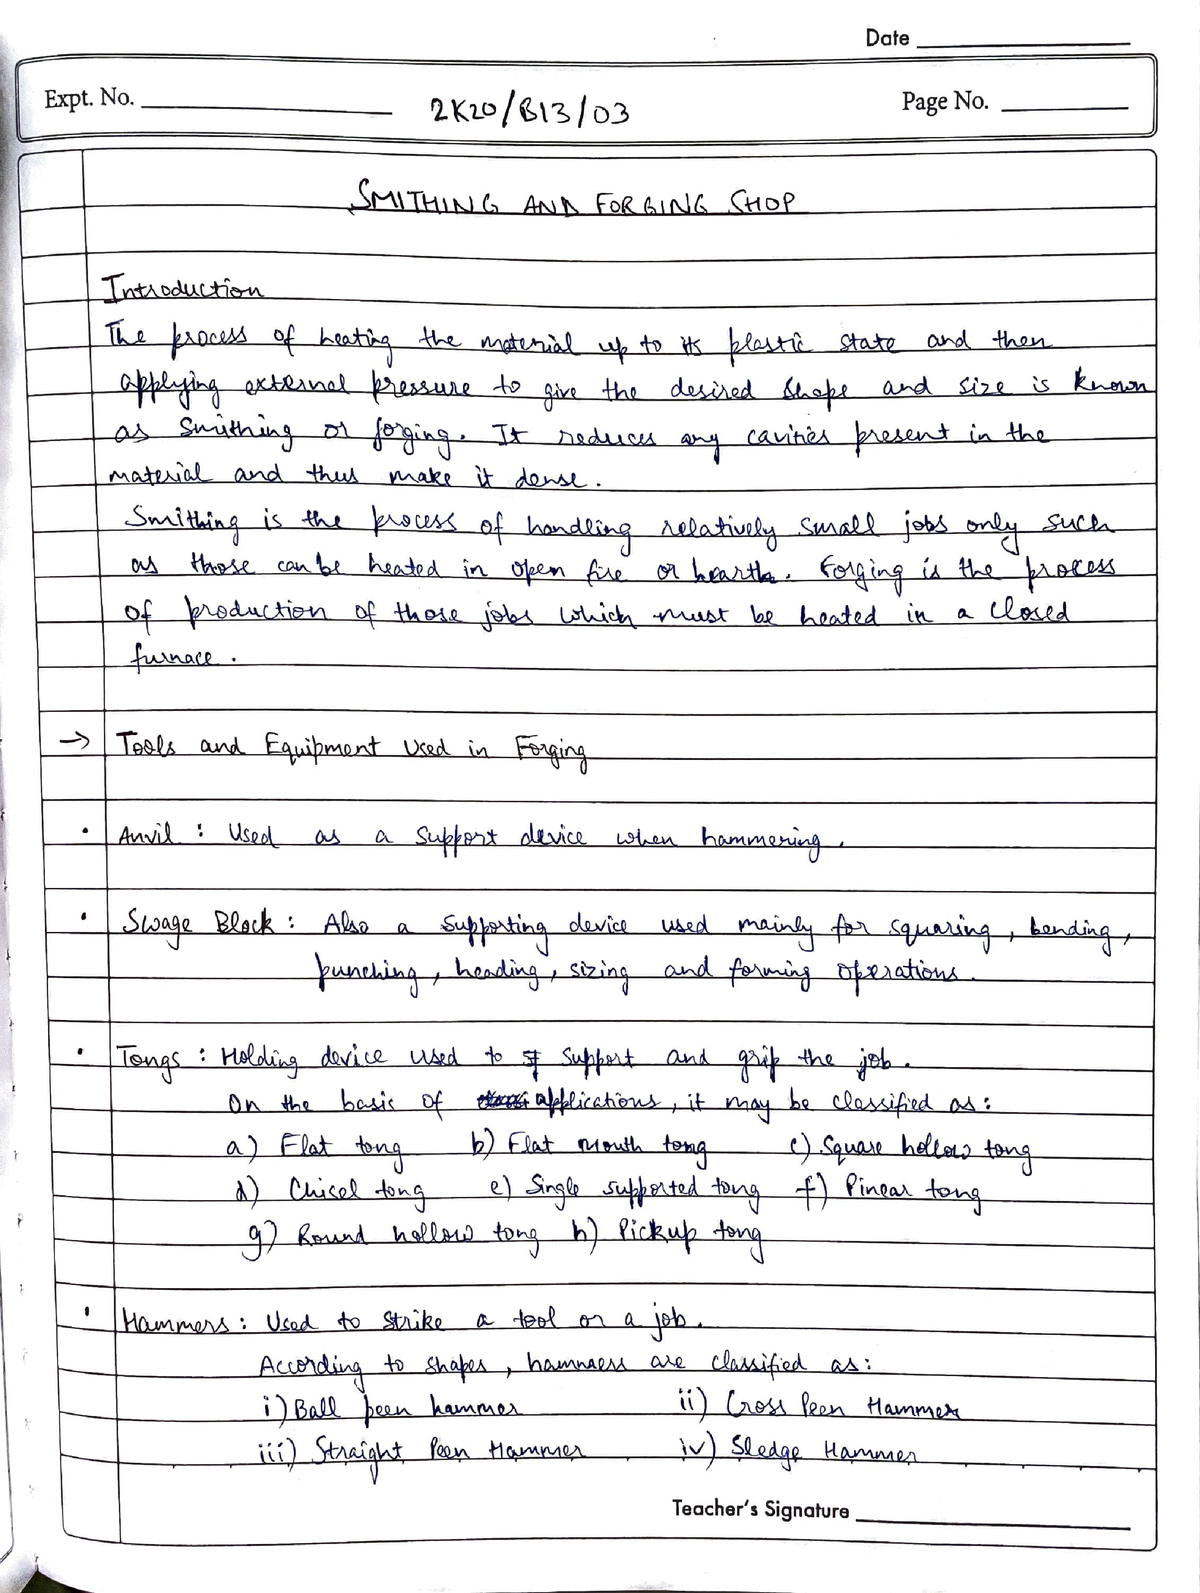 Date
Expt. No.
2K20/B13/03
Page No.
SMITHING AND FORGING SHOP
Introduction
The process of heating the material up to its plastic state and then
applying external pressure to give the desired shape and size is known
as Smithing or forging. It reduces any cavities present in the
material and thus make it dense.
Smithing is the process of handling relatively small jobs only such
as those can be heated in open fire or hearth. Forging is the process
of production of those jobs which must be heated in a closed
furnace.
→ Tools and Equipment Used in Forging
• Anvil : Used as a support device when hammering.
• Swage Block : Also a supporting device used mainly for squaring, bending,
punching, heading, sizing and forming operations.
• Tongs : Holding device used to support and grip the job.
On the basis of applications, it may be classified as :
a) Flat tong b) Flat mouth tong c) Square hollow tong
d) Chisel tong e) Single supported tong f) Pinear tong
g) Round hollow tong h) Pickup tong
• Hammers : Used to strike a tool or a job.
According to shapes, hamnaers are classified as :
i) Ball peen hammer ii) Cross Peen Hammer
iii) Straight Peen Hammer iv) Sledge Hammer
Teacher's Signature